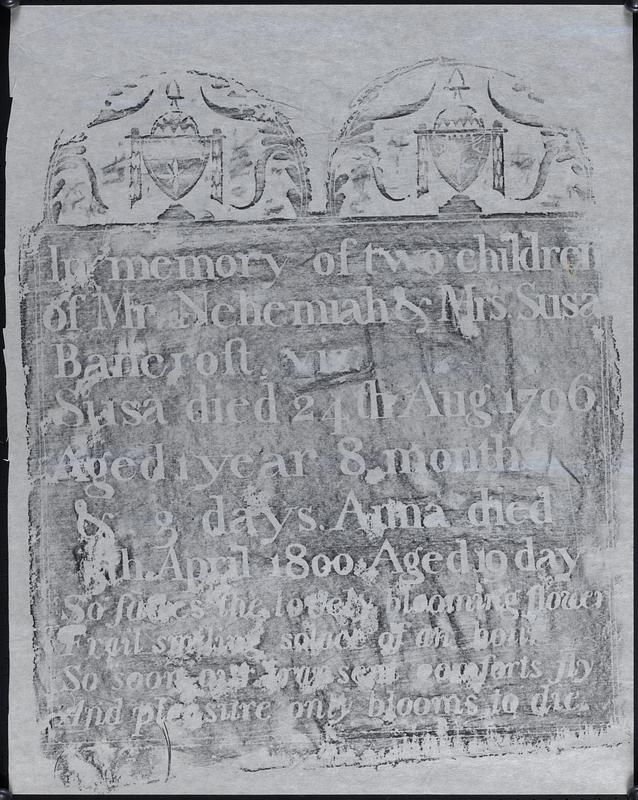 In memory of two children
of Mr. Nehemiah & Mrs Susa
Bancroft, viz.
Susa died 24th Aug 1796
Aged 1 year 8 months
& 3 days. Anna died
th April 1800 Aged 10 day
So fades the lovely blooming flower
Frail smiling solace of an hour
So soon our transient comforts fly
And pleasure only blooms to die.